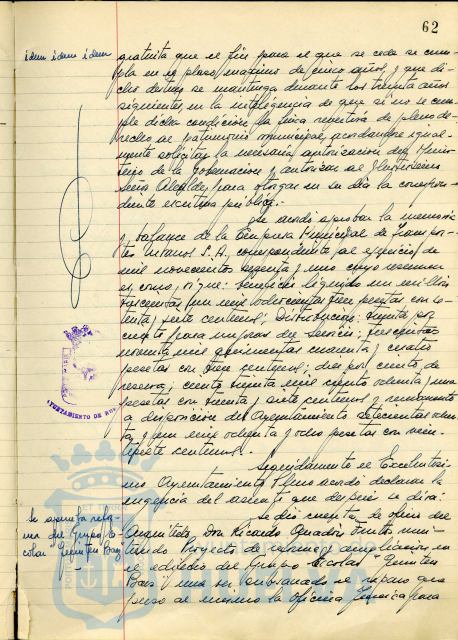 62
idem idem idem
gratuita que el fin para el que se cede se cum-
pla en el plazo maximo de cinco años, y que di-
cho destino se mantenga durante los treinta años
siguientes, en la inteligencia de que si no se cum-
ple dicha condición la finca revertirá de pleno de-
recho al patrimonio municipal, acordandose igual-
mente solicitar la necesaria autorización del Minis-
terio de la Gobernacion y autorizar al Ilustrisimo
Señor Alcalde para otorgar en su dia la correspon-
diente escritura pública.
Se acordó aprobar la memoria
y balance de la Empresa Municipal de Transpor-
tes Urbanos S.A., correspondiente al ejercicio de
mil novecientos sesenta y uno cuyo resumen
es como sigue: beneficio líquido un millón
doscientas mil pesetas con
y siete centimos; Distribución: treinta por
ciento para mejoras del servicio;
noventa mil quinientas cuarenta y cuatro
pesetas con centimos; diez por ciento de
reserva; ciento treinta mil ciento ochenta y una
pesetas con treinta y siete centimos y remanente
a disposición del Ayuntamiento setecientas ochen-
ta y un mil ochenta y ocho pesetas con vein-
tisiete centimos.
Seguidamente el Excelentisi-
mo Ayuntamiento Pleno acordó declarar la
urgencia del asunto que despues se dira:
Se aprueba refor-
ma del Grupo Es-
colar "Quintin Baz"
Se dio cuenta de oficio del
Arquitecto Don Ricardo remi-
tiendo Proyecto de reforma y ampliación en
el edificio del Grupo Escolar "Quintin
una vez subsanado el reparo que
puso al mismo la Oficina Técnica para
AYUNTAMIENTO DE